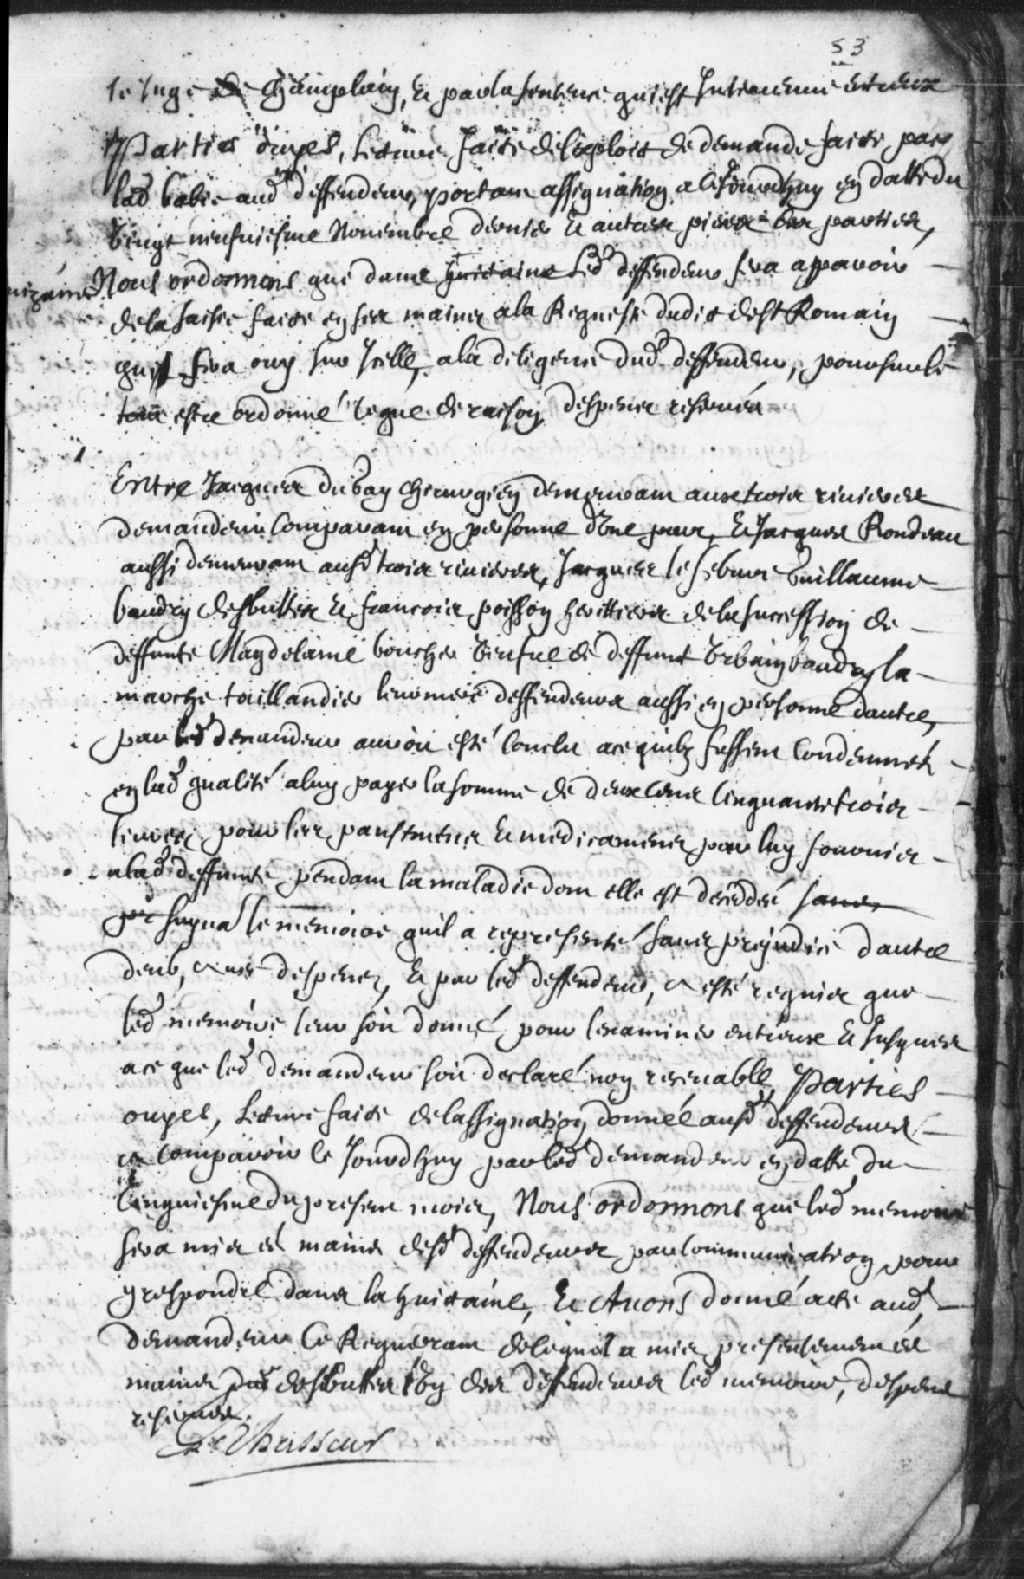 53
le Juge de Champlain, & par la sentence qui est Intervenue entreux
Parties ouyes, Lecture faite de lexploit de demande faite par
lad babie aud deffendeur, portant assignation a ce Jourdhuy en datte du
vingt neufuiesme Novembre dernier & autres pieces des parties,
Nous ordonnons que dame huictaine Led deffendeur fera apparoir
de la saisie faite en ses mains a la Requeste dudit de st Romain
qui sera ouy sur Icelle, a la diligence dud deffendeur, pour sur le
tout estre ordonné ce que de raison, despens reservés
Entre Jacques dubay chirurgien demeurant aux trois rivieres
demandeur Comparant en personne d'une part, Et Jacques Rondeau
aussi demeurant ausd trois rivieres, Jacques le febure Guillaume
baudry desbuttes & francois poisson heritiers de la succession de
deffunte Magdelaine boucher veufue de deffunt Urbain baudry la
marche taillandier leur mere deffendeurs aussi en personne dautre,
par led demandeur auroit esté conclu a ce quilz fussent Condemnés
en lad qualité a luy payer la somme de deux cens Cinquante trois
livres pour les pansements & medicaments par luy fournis
a lad deffunte pendant la maladie dont elle est deceddé sans
le memoire quil a representé sans prejudice dautre
deub, & aux despens, & par led deffendeurs, a esté requis que
led memoire leur soit donné pour lexaminer entreux & Jusques
a ce que led demandeur soit declaré non recevable, Parties
ouyes, Lecture faite de lassignation donnée ausd deffendeurs
a comparoir le Jourdhuy par led demandeur en datte du
Cinquiesme du present mois, Nous ordonnons que led memoire
sera mis es mains desd deffendeurs par communication pour
y respondre dans la huictaine, Et Avons donné acte aud
demandeur Ce Requerant de ce quil a mis presentement es
mains dud desbuttes lun des deffendeurs led memoire, despens
reservés.
Le Chasseur